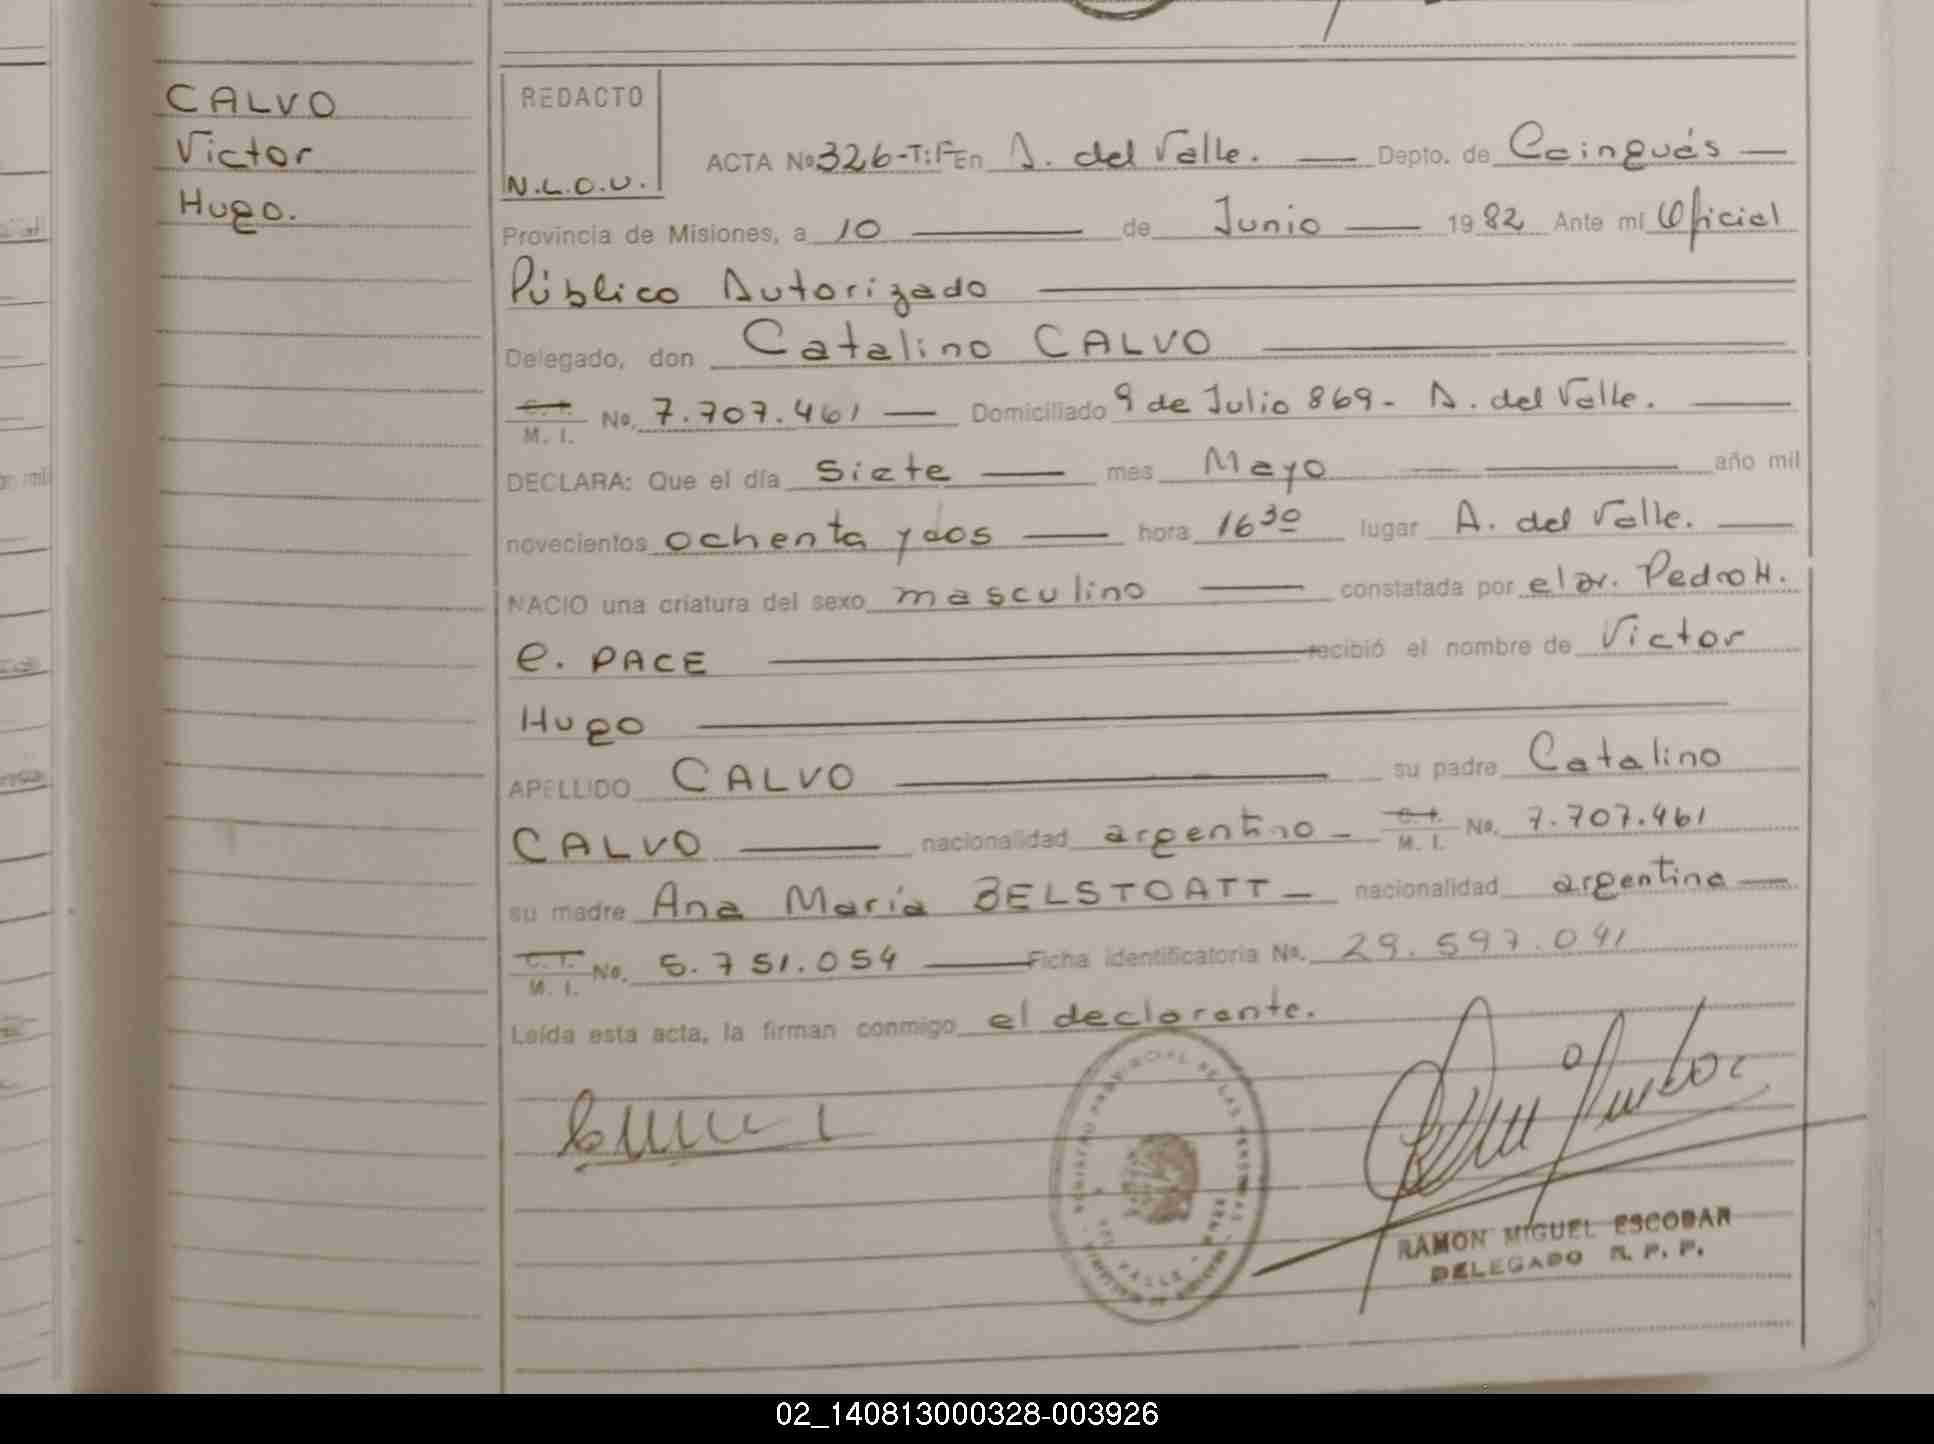 CALVO
Victor
Hugo.
REDACTO
N.L.O.U.
ACTA No 326-T:I:F En A. del Valle. — Depto. de Cainguás —
Provincia de Misiones, a 10 — de Junio — 1982 Ante mi Oficial
Público Autorizado
Delegado, don Catalino CALVO
C.I. M. I. No. 7.707.461 — Domiciliado 9 de Julio 869 - A. del Valle. —
DECLARA: Que el día siete — mes Mayo — año mil
novecientos ochenta y dos — hora 16 30 lugar A. del Valle. —
NACIO una criatura del sexo masculino — constatada por el dr. Pedro H.
E. PACE — recibió el nombre de Victor
Hugo —
APELLIDO CALVO — su padre Catalino
CALVO — nacionalidad argentino - C.I. M. I. No. 7.707.461
su madre Ana María BELSTOATT - nacionalidad argentina —
C.I. M. I. No. 5.751.054 — Ficha identificatoria No. 29.597.041
Leída esta acta, la firman conmigo el declarante.
REGISTRO PROVINCIAL DE LAS PERSONAS
DEL VALLE
RAMON MIGUEL ESCOBAR
DELEGADO R. P. P.
02_140813000328-003926